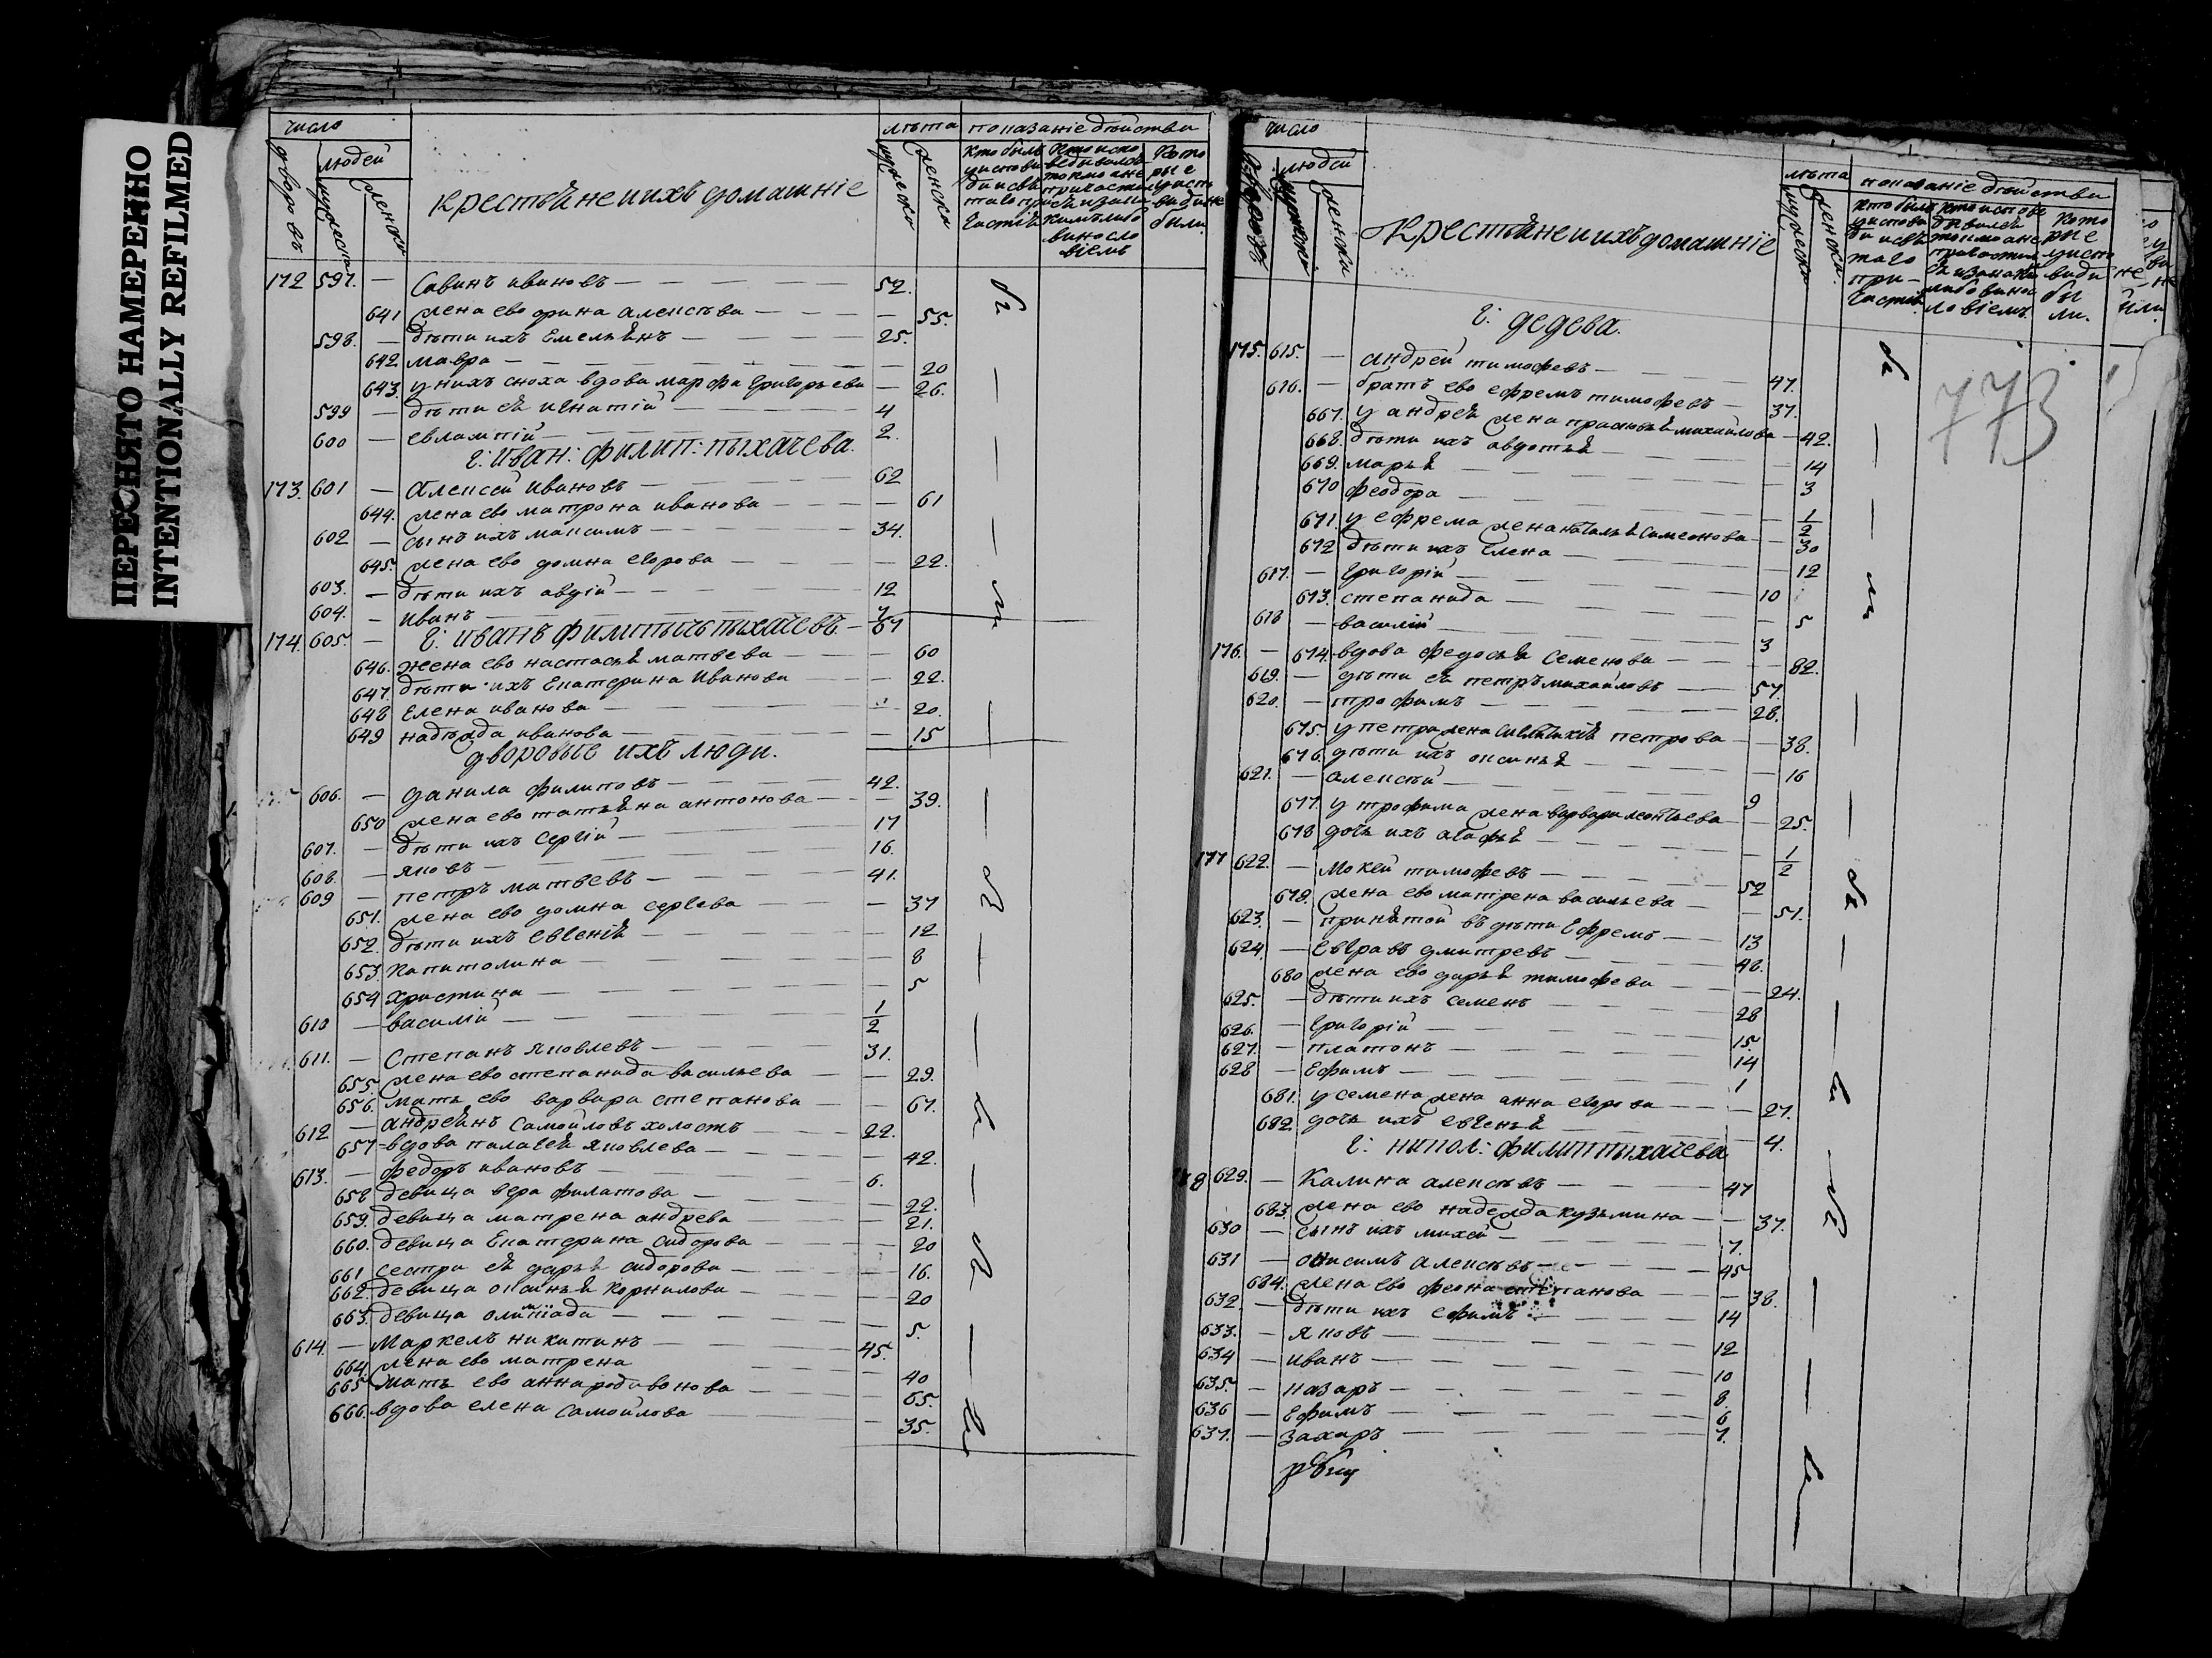 ПЕРЕСНЯТО НАМЕРЕННО
INTENTIONALLY REFILMED
число лѣта показаніе дѣйства
дворовъ людей
мужеска женска
крестьяне и ихъ домашніе
мужеска женска
172 597. — Савинъ ивановъ — 52.
641 жена ево орина алексѣва — 55.
598. — дѣти ихъ Емельянъ — 25.
642 мавра — 20
643. у нихъ сноха вдова марфа григорьева — 26.
599 — дѣти ея игнатій — 4
600 — евлампій — 2.
г: иван: филип: пыхачева.
173. 601 — Алексей ивановъ — 62
644. жена ево матрона иванова — 61
602 — сынъ ихъ максимъ — 34.
645. жена ево домна егорова — 22.
603. — дѣти ихъ авдій — 12
604. — иванъ — 7
174. 605. — г: иванъ филипычъ пыхачевъ — 67
646. жена ево настасья матвева — 60
647. дѣти ихъ Екатерина иванова — 22.
648 Елена иванова — 20.
649 надѣжда иванова — 15
дворовые ихъ люди.
606. — данила филиповъ — 42.
650 жена ево татьяна антонова — 39.
607. — дѣти ихъ сергій — 17
608. — яковъ — 16.
609 — петръ матвевъ — 41.
651. жена ево домна сергева — 37
652. дѣти ихъ евгенія — 12
653 капитолина — 8
654 христина — 5
610 — василій — 1/2
611. — Степанъ яковлевъ — 31.
655. жена ево степанида васильева — 29.
656. мать ево варвара степанова — 67.
612 — андреянъ самойловъ холостъ — 22.
657 вдова палагея яковлева — 42.
613. — федоръ ивановъ — 6.
658 девица вера филатова — 22.
659. девица матрена андрева — 21.
660. девица Екатерина сидорова — 20
661 сестра ея дарья сидорова — 16.
662 девица оксинья корнилова — 20
663. девица олимпіада — 5.
614. — Маркелъ никитинъ — 45.
664. жена ево матрена — 40
665 мать ево анна родивонова — 65.
666. вдова елена самойлова — 35.
число лѣта показаніе дѣйства
дворовъ людей
мужеска женска
Крестьяне и ихъ домашніе
мужеска женска
773
г: дедева.
175. 615. — андрей тимофевъ — 47.
616. — братъ ево ефремъ тимофевъ — 37.
667. у андрея жена прасковья михайлова — 42.
668. дѣти ихъ авдотья — 14
669. марья — 3
670 феодора — 1/2
671. у ефрема жена наталья симеонова — 30
672 дѣти ихъ елена — 12
617. — григорій — 10
673. степанида — 5
618 — василій — 3
176. — 674. вдова федосья семенова — 82.
619. — дѣти ея петръ михайловъ — 57.
620. — трофимъ — 28.
675. у петра жена петрова — 38.
676. дѣти ихъ оксинья — 16
621. — алексѣй — 9
677. у трофима жена варвара леонтьева — 25.
678 дочь ихъ агафья — 1/2
177 622. — мокей тимофевъ — 52
679. жена ево матрена васильева — 51.
623. — принятой въ дѣти Ефремъ — 13
624. — евграфъ дмитревъ — 48.
680 жена ево дарья тимофева — 24.
625. — дѣти ихъ семенъ — 28
626. — григорій — 15.
627. — платонъ — 14
628 — Ефимъ — 1
681. у семена жена анна егорова — 27.
682 дочь ихъ евгенья — 4.
г: никол: филип пыхачева
178 629. — Калина алексѣвъ — 47
683. жена ево надежда кузьмина — 37.
630 — сынъ ихъ михей — 7.
631 — онисимъ алексѣвъ — 45
684. жена ево феона степанова — 38.
632. — дѣти ихъ ефимъ — 14
633. — яковъ — 12
634 — иванъ — 10
635. — назаръ — 8.
636 — Ефимъ — 6
637. — захаръ — 1.